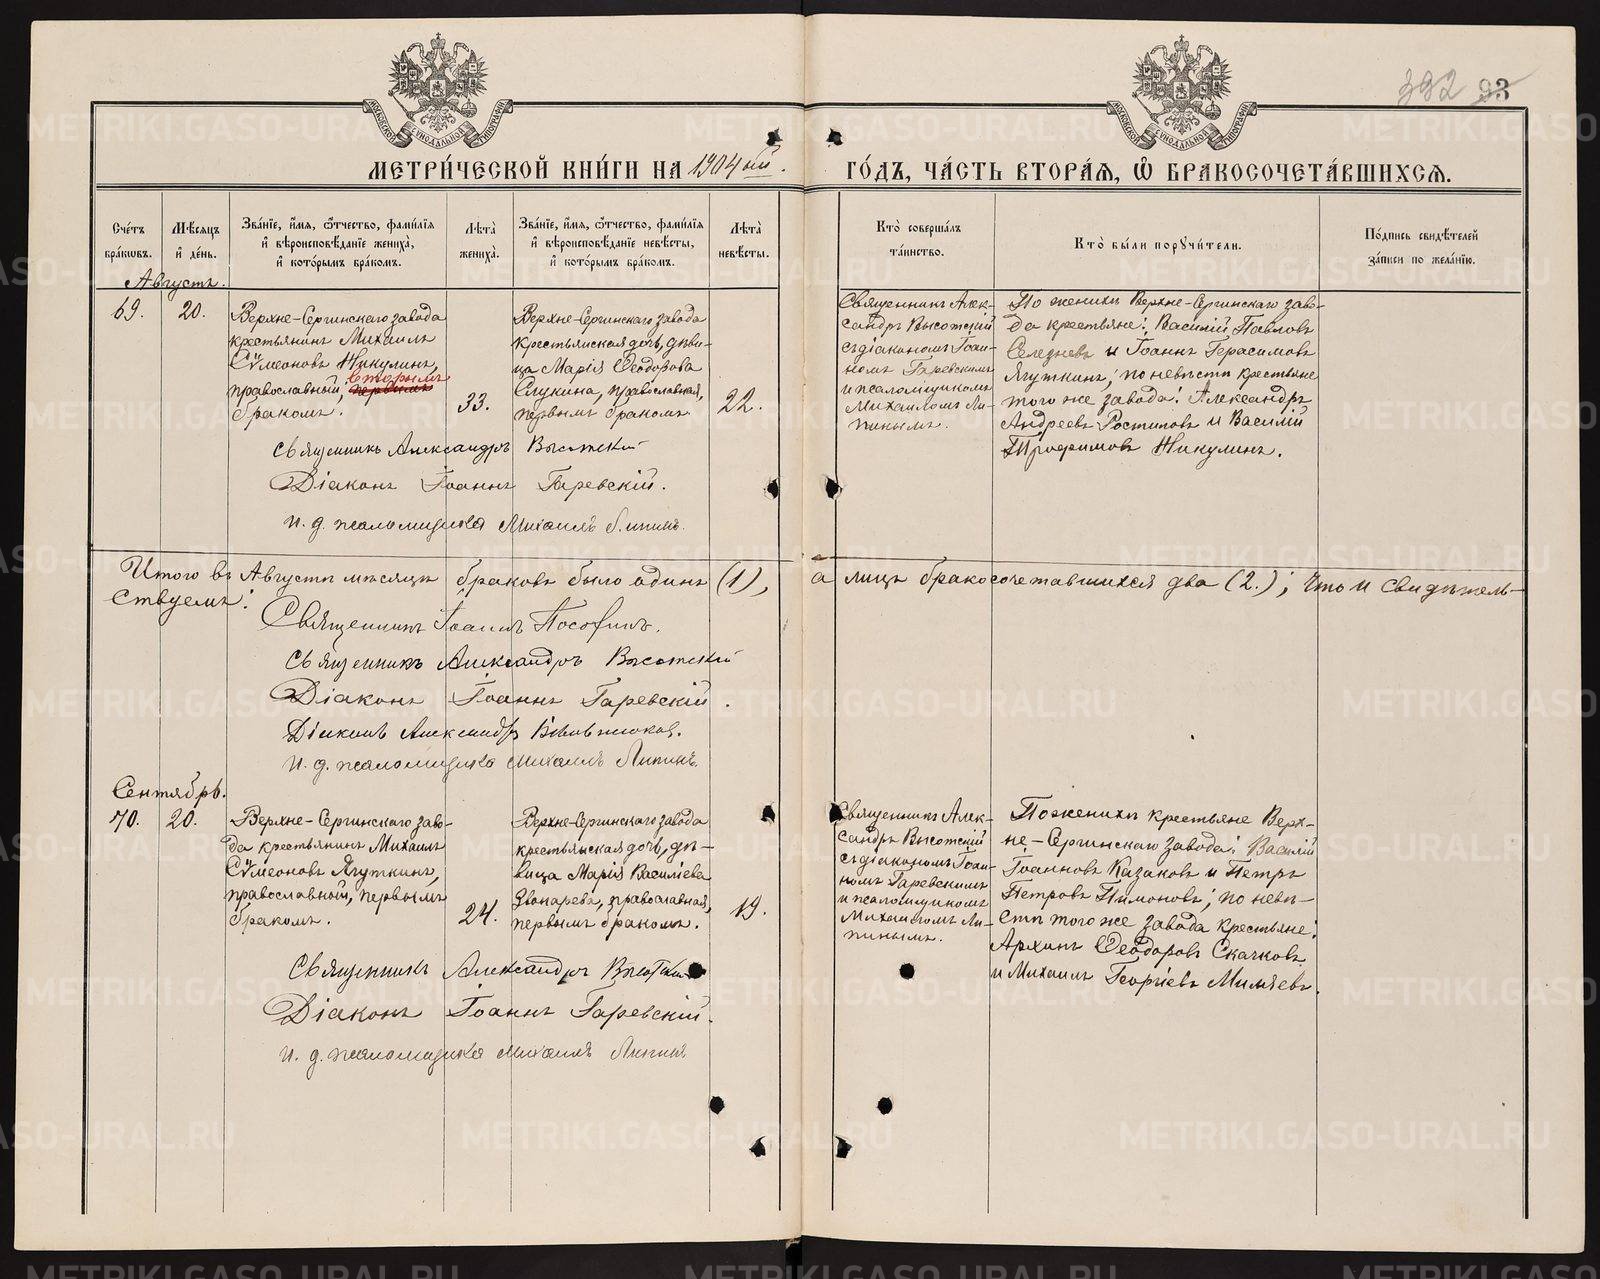 392 93
МОСКОВСКОЙ СѴНОДАЛЬНОЙ ТИПОГРАФІИ
МОСКОВСКОЙ СѴНОДАЛЬНОЙ ТИПОГРАФІИ
МЕТРИ́ЧЕСКОЙ КНИ́ГИ НА 1904 ый. ГО́ДЪ, ЧА́СТЬ ВТОРА́Я, Ѽ БРАКОСОЧЕТА́ВШИХСЯ.
Сче́тъ
бра́кωвъ.
Мѣ́сяцъ
и҆ де́нь.
Зва́нїе, и҆́мя, ѻ҆́тчество, фами́лїя
и҆ вѣроисповѣ́данїе жениха̀,
и҆ кото́рымъ бра́комъ.
Лѣ́та
жениха̀.
Зва́нїе, и҆́мя, ѻ҆́тчество, фами́лїя
и҆ вѣроисповѣ́данїе невѣ́сты,
и҆ кото́рымъ бра́комъ.
Лѣ́та
невѣ́сты.
Кто̀ соверша́лъ
та́инство.
Кто̀ бы́ли порꙋчи́тели.
По́дпись свидѣ́телей
за́писи по жела́нїю.
Августъ.
69.
20.
Верхне-Сергинскаго завода
крестьянинъ Михаилъ
Сѵмеоновъ Никулинъ,
православный, первымъ вторымъ
бракомъ.
33.
Верхне-Сергинскаго завода
крестьянская дочь, дѣви-
ца Марія Ѳеодорова
Слукина, православная,
первымъ бракомъ
22.
Священникъ Алек-
сандръ Высотскій
съ діакономъ Іоан-
номъ Гаревскимъ
и псаломщикомъ
Михаиломъ Ли-
пинымъ.
По женихѣ Верхне-Сергинскаго заво-
да крестьяне: Василій Павловъ
Селезневъ и Іоаннъ Герасимовъ
Ягуткинъ; по невѣстѣ крестьяне
того же завода: Александръ
Андреевъ Ростиловъ и Василій
Трофимовъ Никулинъ.
Священникъ Александръ Высотскій
Діаконъ Іоаннъ Гаревскій.
и. д. псаломщика Михаилъ Липинъ.
Итого въ Августѣ мѣсяцѣ браковъ было одинъ (1), а лицъ бракосочетавшихся два (2.); что и свидѣтель-
ствуемъ:
Священникъ Іоаннъ
Священникъ Александръ Высотскій
Діаконъ Іоаннъ Гаревскій.
Діаконъ Александръ
и. д. псаломщика Михаилъ Липинъ.
Сентябрь.
70.
20.
Верхне-Сергинскаго заво-
да крестьянинъ Михаилъ
Сѵмеоновъ Ягуткинъ,
православный, первымъ
бракомъ.
24.
Верхне-Сергинскаго завода
крестьянская дочь, дѣ-
вица Марія Василіева
Звонарева, православная,
первымъ бракомъ.
19.
Священникъ Алек-
сандръ Высотскій
съ діакономъ Іоан-
номъ Гаревскимъ
и псаломщикомъ
Михаиломъ Ли-
пинымъ.
По женихѣ крестьяне Верх-
не-Сергинскаго завода: Василій
Іоанновъ Казаковъ и Петръ
Петровъ Пимоновъ; по невѣ-
стѣ того же завода крестьяне:
Архипъ Ѳеодоровъ Скачковъ
и Михаилъ Георгіевъ Миляевъ.
Священникъ Александръ Высотскій
Діаконъ Іоаннъ Гаревскій.
и. д. псаломщика Михаилъ Липинъ
METRIKI.GASO-URAL.RU